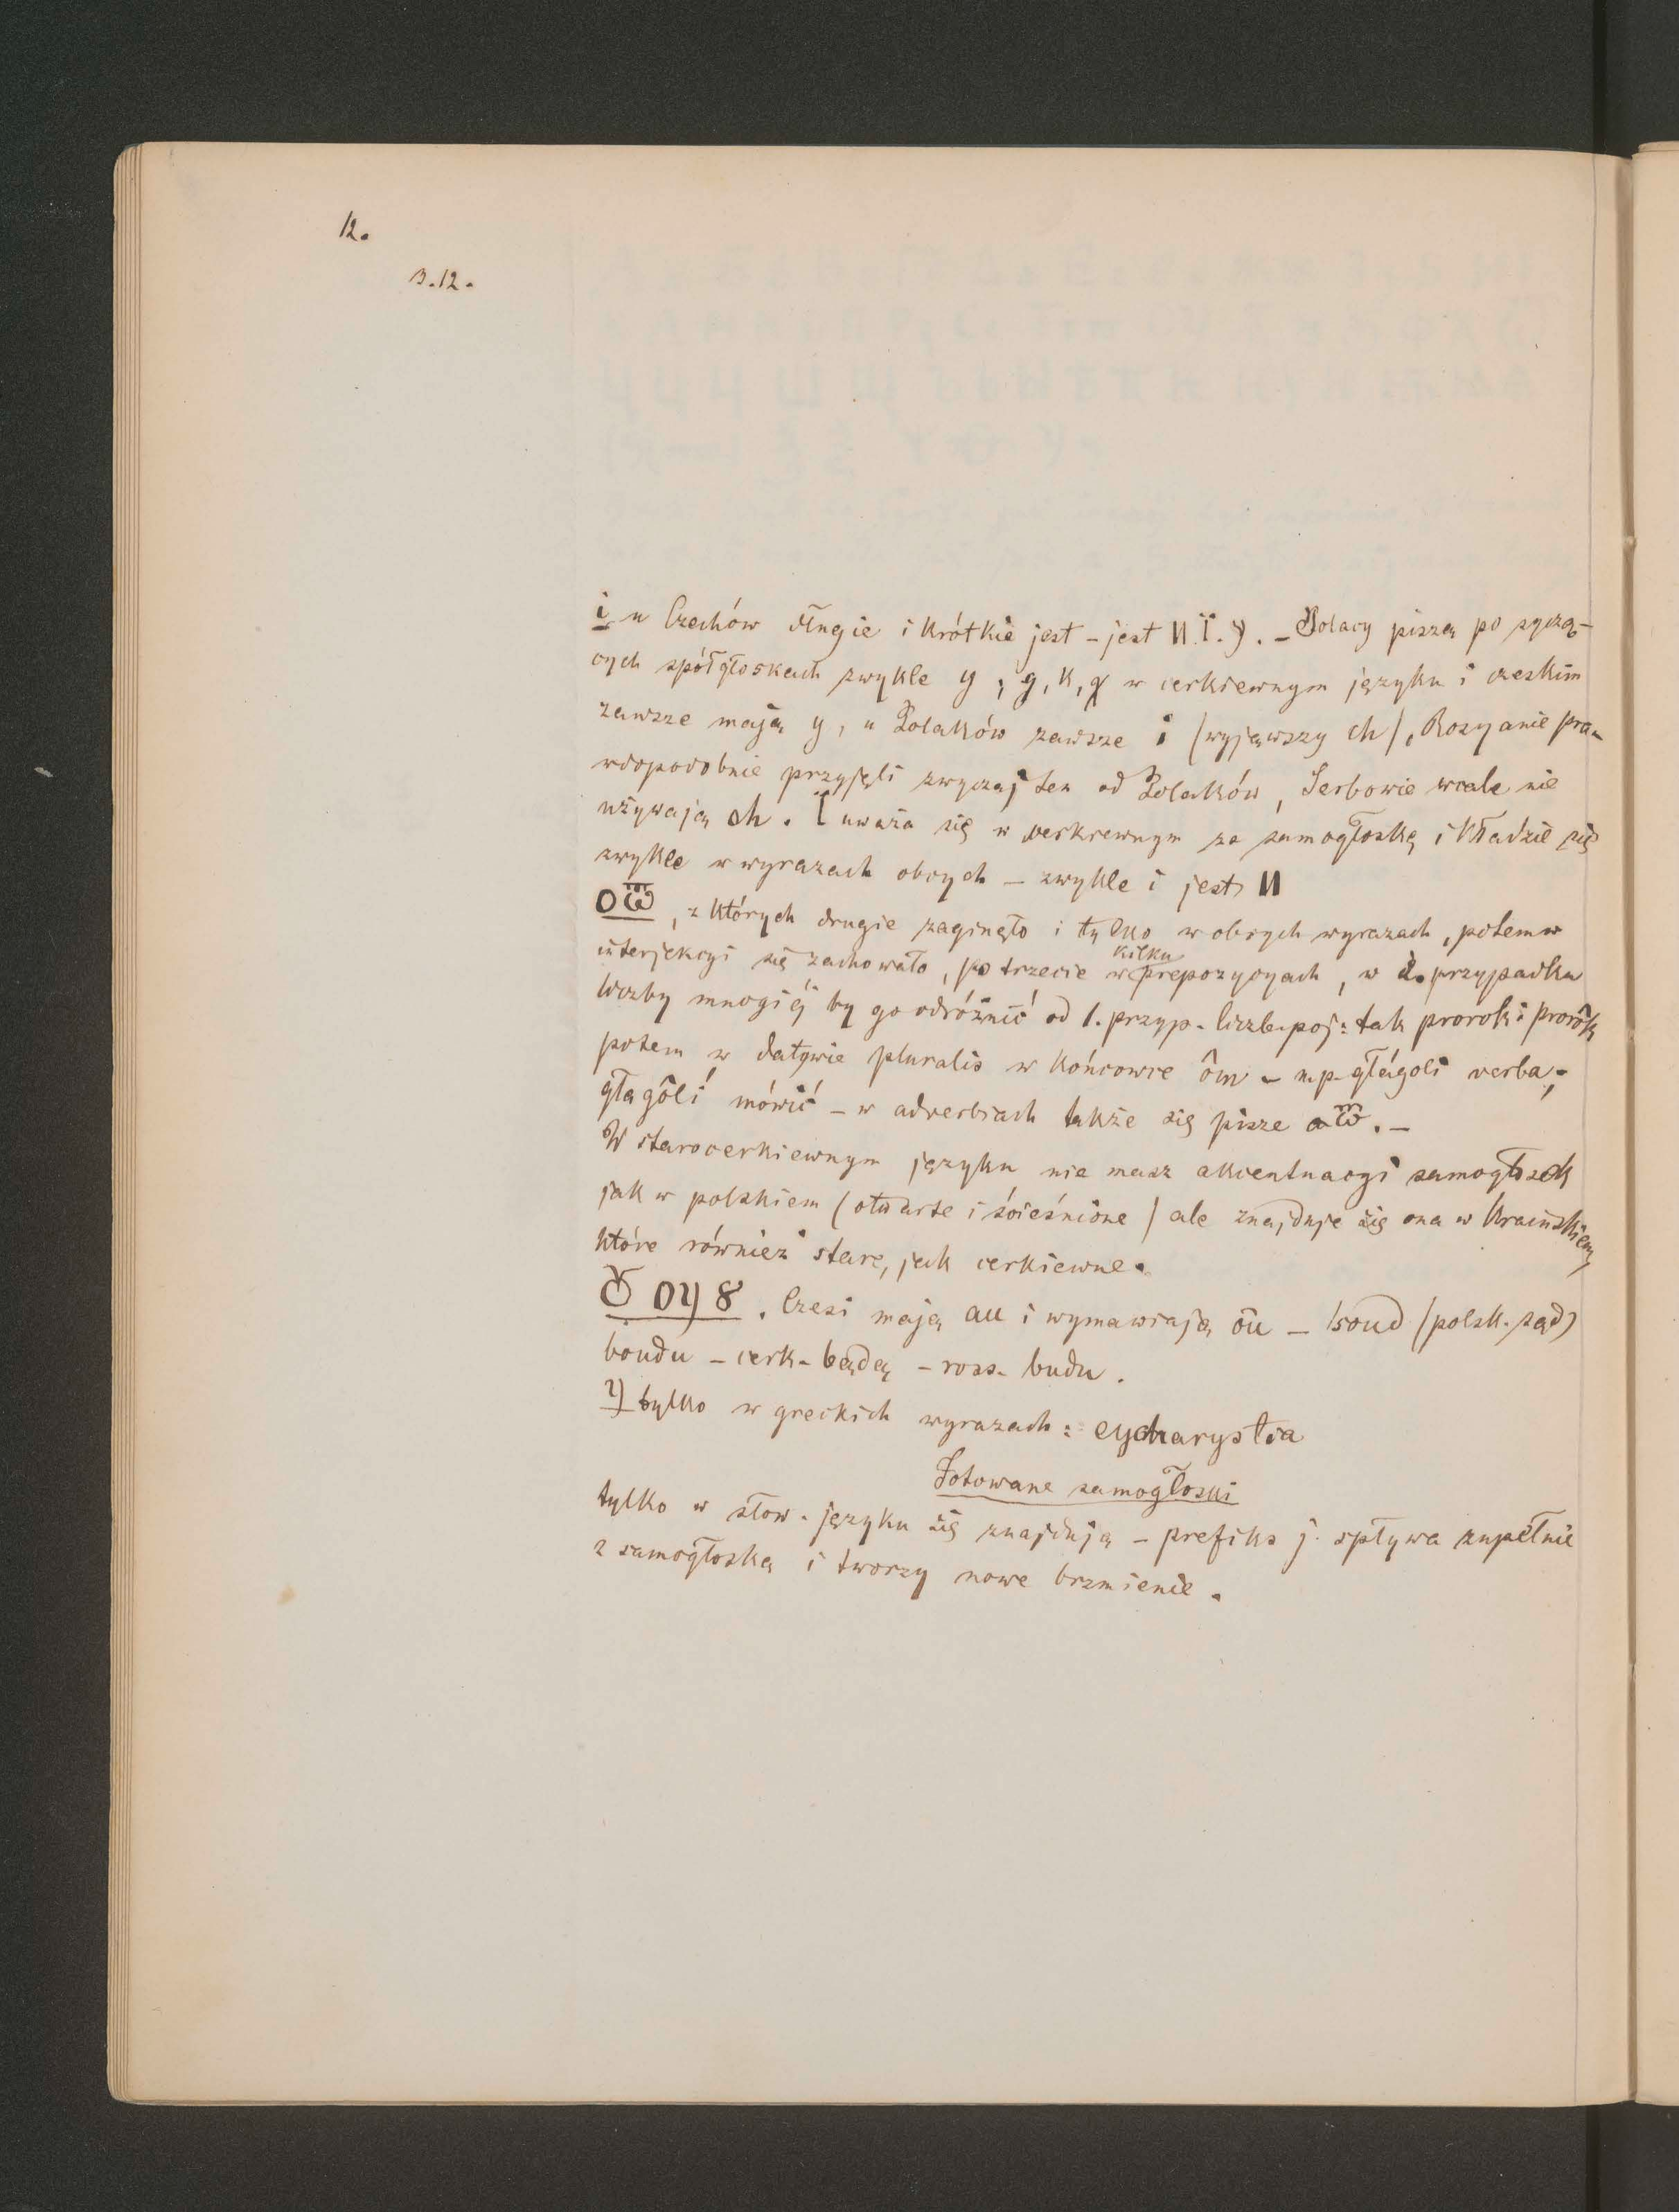 12.
3.12.
i u Czechów długie i krótkie jest - jest И.Ї.Ӱ. - Polacy piszą po syczą-
cych spółgłoskach zwykle y; g, k, χ w cerkiewnym języku i czeskim
zawsze mają y, u Polaków zawsze i (wyjąwszy ch), Rosyanie pra-
wdopodobnie przyjęli zwyczaj ten od Polaków, Serbowie wcale nie
używają ch. Ї uważa się w cerkiewnym za samogłoskę i kładzie się
zwykle w wyrazach obcych - zwykle i jest И
О Ѿ, z których drugie zaginęło i tylko w obcych wyrazach, potem w
interjekcyi się zachowało, po trzecie w kilku prepozycyach, w 2. przypadku
liczby mnogiéj by go odróżnić od 1. przyp. liczb. poj: tak prorok i prorôk
potem w datywie pluralis w końcowce ôm - np. głágoli verba;
głagôli mówić - w adverbiach także się pisze a ѿ. -
W starocerkiewnym języku nie masz akcentuacyi samogłosek
jak w polskiem (otwarte i ścieśnione) ale znajduje się ona w Kraińskiem,
które również stare, jak cerkiewne.
Ѹ ОУ 8. Czesi mają au i wymawiają ou - soud (polsk. sąd)
boudu - cerk. bądą - ross. budu.
У tylko w greckich wyrazach: eycharystia
Jotowane samogłoski
tylko w słow. języku się znajdują - prefiks j. spływa zupełnie
z samogłoską i tworzy nowe brzmienie.